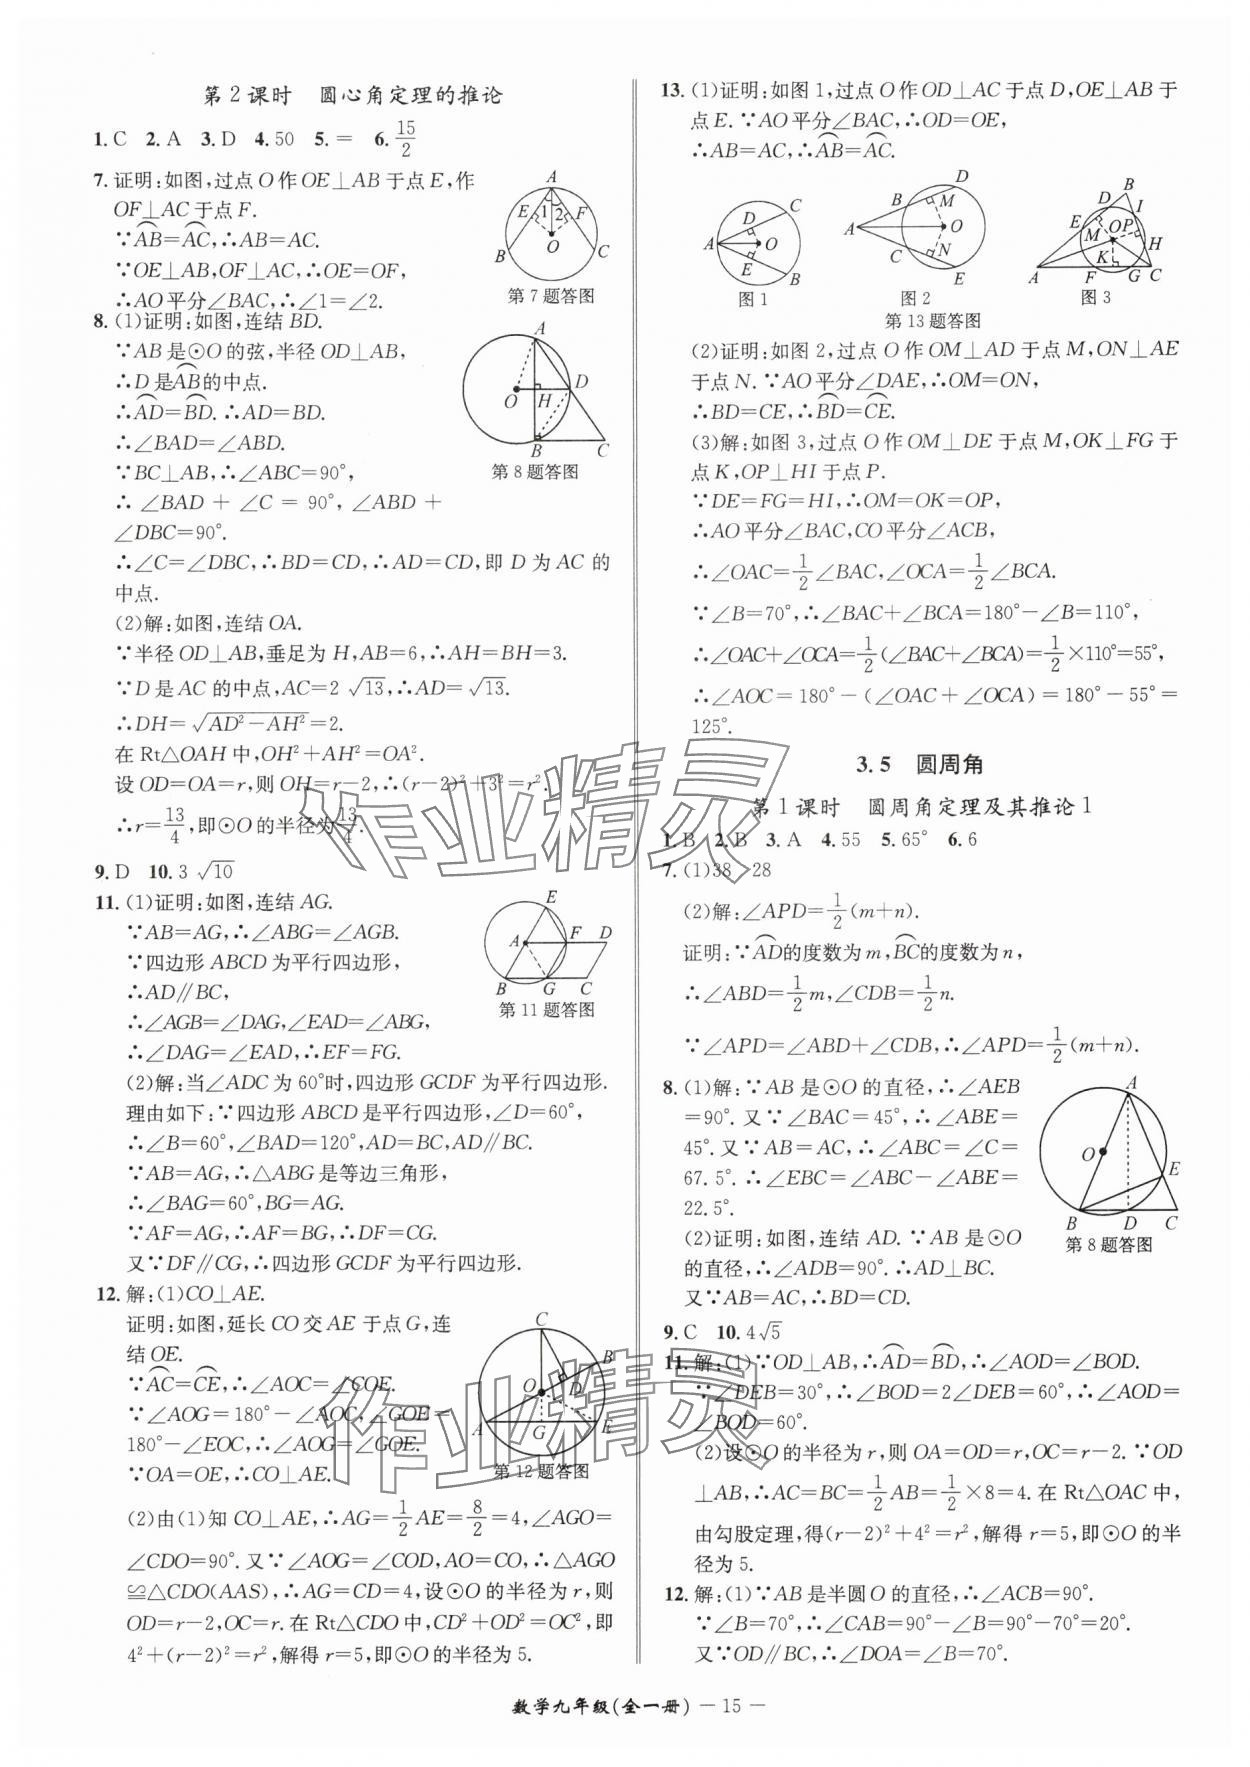 第2课时　圆心角定理的推论
1. C　2. A　3. D　4. 50　5. =　6. 15/2
7. 证明:如图,过点O作OE⊥AB于点E,作
OF⊥AC于点F.
∵⌒AB=⌒AC,∴AB=AC.
∵OE⊥AB,OF⊥AC,∴OE=OF,
∴AO平分∠BAC,∴∠1=∠2.
A
E 1 2 F
O
B C
第7题答图
8. (1)证明:如图,连结BD.
∵AB是⊙O的弦,半径OD⊥AB,
∴D是⌒AB的中点.
∴⌒AD=⌒BD. ∴AD=BD.
∴∠BAD=∠ABD.
∵BC⊥AB,∴∠ABC=90°,
∴∠BAD+∠C=90°,∠ABD+
∠DBC=90°.
∴∠C=∠DBC,∴BD=CD,∴AD=CD,即D为AC的
中点.
A
O H D
B C
第8题答图
(2)解:如图,连结OA.
∵半径OD⊥AB,垂足为H,AB=6,∴AH=BH=3.
∵D是AC的中点,AC=2√13,∴AD=√13.
∴DH=√(AD²−AH²)=2.
在Rt△OAH中,OH²+AH²=OA².
设OD=OA=r,则OH=r−2,∴(r−2)²+3²=r².
∴r=13/4,即⊙O的半径为13/4.
9. D　10. 3√10
11. (1)证明:如图,连结AG.
∵AB=AG,∴∠ABG=∠AGB.
∵四边形ABCD为平行四边形,
∴AD∥BC,
∴∠AGB=∠DAG,∠EAD=∠ABG,
∴∠DAG=∠EAD,∴EF=FG.
E
A F D
B G C
第11题答图
(2)解:当∠ADC为60°时,四边形GCDF为平行四边形.
理由如下:∵四边形ABCD是平行四边形,∠D=60°,
∴∠B=60°,∠BAD=120°,AD=BC,AD∥BC.
∵AB=AG,∴△ABG是等边三角形,
∴∠BAG=60°,BG=AG.
∵AF=AG,∴AF=BG,∴DF=CG.
又∵DF∥CG,∴四边形GCDF为平行四边形.
12. 解:(1)CO⊥AE.
证明:如图,延长CO交AE于点G,连
结OE.
∵⌒AC=⌒CE,∴∠AOC=∠COE.
∵∠AOG=180°−∠AOC,∠GOE=
180°−∠EOC,∴∠AOG=∠GOE.
∵OA=OE,∴CO⊥AE.
C
B
O D
A G E
第12题答图
(2)由(1)知CO⊥AE,∴AG=1/2AE=8/2=4,∠AGO=
∠CDO=90°. 又∵∠AOG=∠COD,AO=CO,∴△AGO
≌△CDO(AAS),∴AG=CD=4,设⊙O的半径为r,则
OD=r−2,OC=r. 在Rt△CDO中,CD²+OD²=OC²,即
4²+(r−2)²=r²,解得r=5,即⊙O的半径为5.
13. (1)证明:如图1,过点O作OD⊥AC于点D,OE⊥AB于
点E. ∵AO平分∠BAC,∴OD=OE,
∴AB=AC,∴⌒AB=⌒AC.
C
D
A O
E
B
图1
D
B M
A O
C N
E
图2
B
D I
E
M O P
H
K
A F G C
图3
第13题答图
(2)证明:如图2,过点O作OM⊥AD于点M,ON⊥AE
于点N. ∵AO平分∠DAE,∴OM=ON,
∴BD=CE,∴⌒BD=⌒CE.
(3)解:如图3,过点O作OM⊥DE于点M,OK⊥FG于
点K,OP⊥HI于点P.
∵DE=FG=HI,∴OM=OK=OP,
∴AO平分∠BAC,CO平分∠ACB,
∴∠OAC=1/2∠BAC,∠OCA=1/2∠BCA.
∵∠B=70°,∴∠BAC+∠BCA=180°−∠B=110°,
∴∠OAC+∠OCA=1/2(∠BAC+∠BCA)=1/2×110°=55°,
∴∠AOC=180°−(∠OAC+∠OCA)=180°−55°=
125°.
3.5　圆周角
第1课时　圆周角定理及其推论1
1. B　2. B　3. A　4. 55　5. 65°　6. 6
7. (1)38　28
(2)解:∠APD=1/2(m+n).
证明:∵⌒AD的度数为m,⌒BC的度数为n,
∴∠ABD=1/2m,∠CDB=1/2n.
∵∠APD=∠ABD+∠CDB,∴∠APD=1/2(m+n).
8. (1)解:∵AB是⊙O的直径,∴∠AEB
=90°. 又∵∠BAC=45°,∴∠ABE=
45°. 又∵AB=AC,∴∠ABC=∠C=
67.5°. ∴∠EBC=∠ABC−∠ABE=
22.5°.
(2)证明:如图,连结AD. ∵AB是⊙O
的直径,∴∠ADB=90°. ∴AD⊥BC.
又∵AB=AC,∴BD=CD.
A
O
E
B D C
第8题答图
9. C　10. 4√5
11. 解:(1)∵OD⊥AB,∴⌒AD=⌒BD,∴∠AOD=∠BOD.
∵∠DEB=30°,∴∠BOD=2∠DEB=60°,∴∠AOD=
∠BOD=60°.
(2)设⊙O的半径为r,则OA=OD=r,OC=r−2. ∵OD
⊥AB,∴AC=BC=1/2AB=1/2×8=4. 在Rt△OAC中,
由勾股定理,得(r−2)²+4²=r²,解得r=5,即⊙O的半
径为5.
12. 解:(1)∵AB是半圆O的直径,∴∠ACB=90°.
∵∠B=70°,∴∠CAB=90°−∠B=90°−70°=20°.
又∵OD∥BC,∴∠DOA=∠B=70°.
数学九年级(全一册)－15－
作业精灵
作业精灵